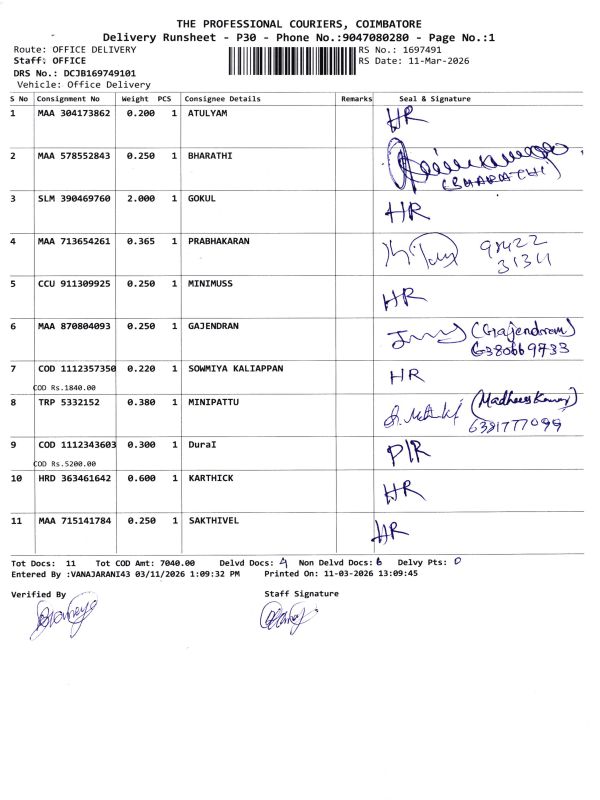 THE PROFESSIONAL COURIERS, COIMBATORE
Delivery Runsheet - P30 - Phone No.:9047080280 - Page No.:1
Route: OFFICE DELIVERY RS No.: 1697491
Staff: OFFICE RS Date: 11-Mar-2026
DRS No.: DCJB169749101
Vehicle: Office Delivery
S No Consignment No Weight PCS Consignee Details Remarks Seal & Signature
1 MAA 304173862 0.200 1 ATULYAM HR
2 MAA 578552843 0.250 1 BHARATHI (BHARATHI)
3 SLM 390469760 2.000 1 GOKUL HR
4 MAA 713654261 0.365 1 PRABHAKARAN 98422
31311
5 CCU 911309925 0.250 1 MINIMUSS HR
6 MAA 870804093 0.250 1 GAJENDRAN (Gajendran)
6380669733
7 COD 1112357350 0.220 1 SOWMIYA KALIAPPAN HR
COD Rs.1840.00
8 TRP 5332152 0.380 1 MINIPATTU
6381777099
9 COD 1112343603 0.300 1 DuraI P/R
COD Rs.5200.00
10 HRD 363461642 0.600 1 KARTHICK HR
11 MAA 715141784 0.250 1 SAKTHIVEL HR
Tot Docs: 11 Tot COD Amt: 7040.00 Delvd Docs: 4 Non Delvd Docs: 6 Delvy Pts: 0
Entered By :VANAJARANI43 03/11/2026 1:09:32 PM Printed On: 11-03-2026 13:09:45
Verified By Staff Signature